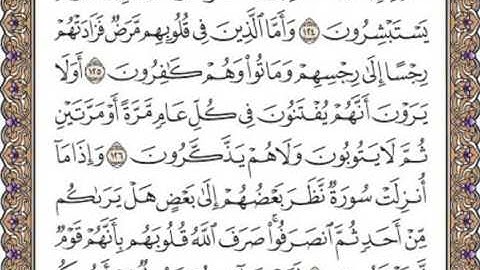 يَسْتَبْشِرُونَ ١٢٤ وَأَمَّا ٱلَّذِينَ فِى قُلُوبِهِم مَّرَضٌ فَزَادَتْهُمْ
رِجْسًا إِلَىٰ رِجْسِهِمْ وَمَاتُوا۟ وَهُمْ كَـٰفِرُونَ ١٢٥ أَوَلَا
يَرَوْنَ أَنَّهُمْ يُفْتَنُونَ فِى كُلِّ عَامٍ مَّرَّةً أَوْ مَرَّتَيْنِ
ثُمَّ لَا يَتُوبُونَ وَلَا هُمْ يَذَّكَّرُونَ ١٢٦ وَإِذَا مَآ
أُنزِلَتْ سُورَةٌ نَّظَرَ بَعْضُهُمْ إِلَىٰ بَعْضٍ هَلْ يَرَىٰكُم
مِّنْ أَحَدٍ ثُمَّ ٱنصَرَفُوا۟ ۚ صَرَفَ ٱللَّهُ قُلُوبَهُم بِأَنَّهُمْ قَوْمٌ